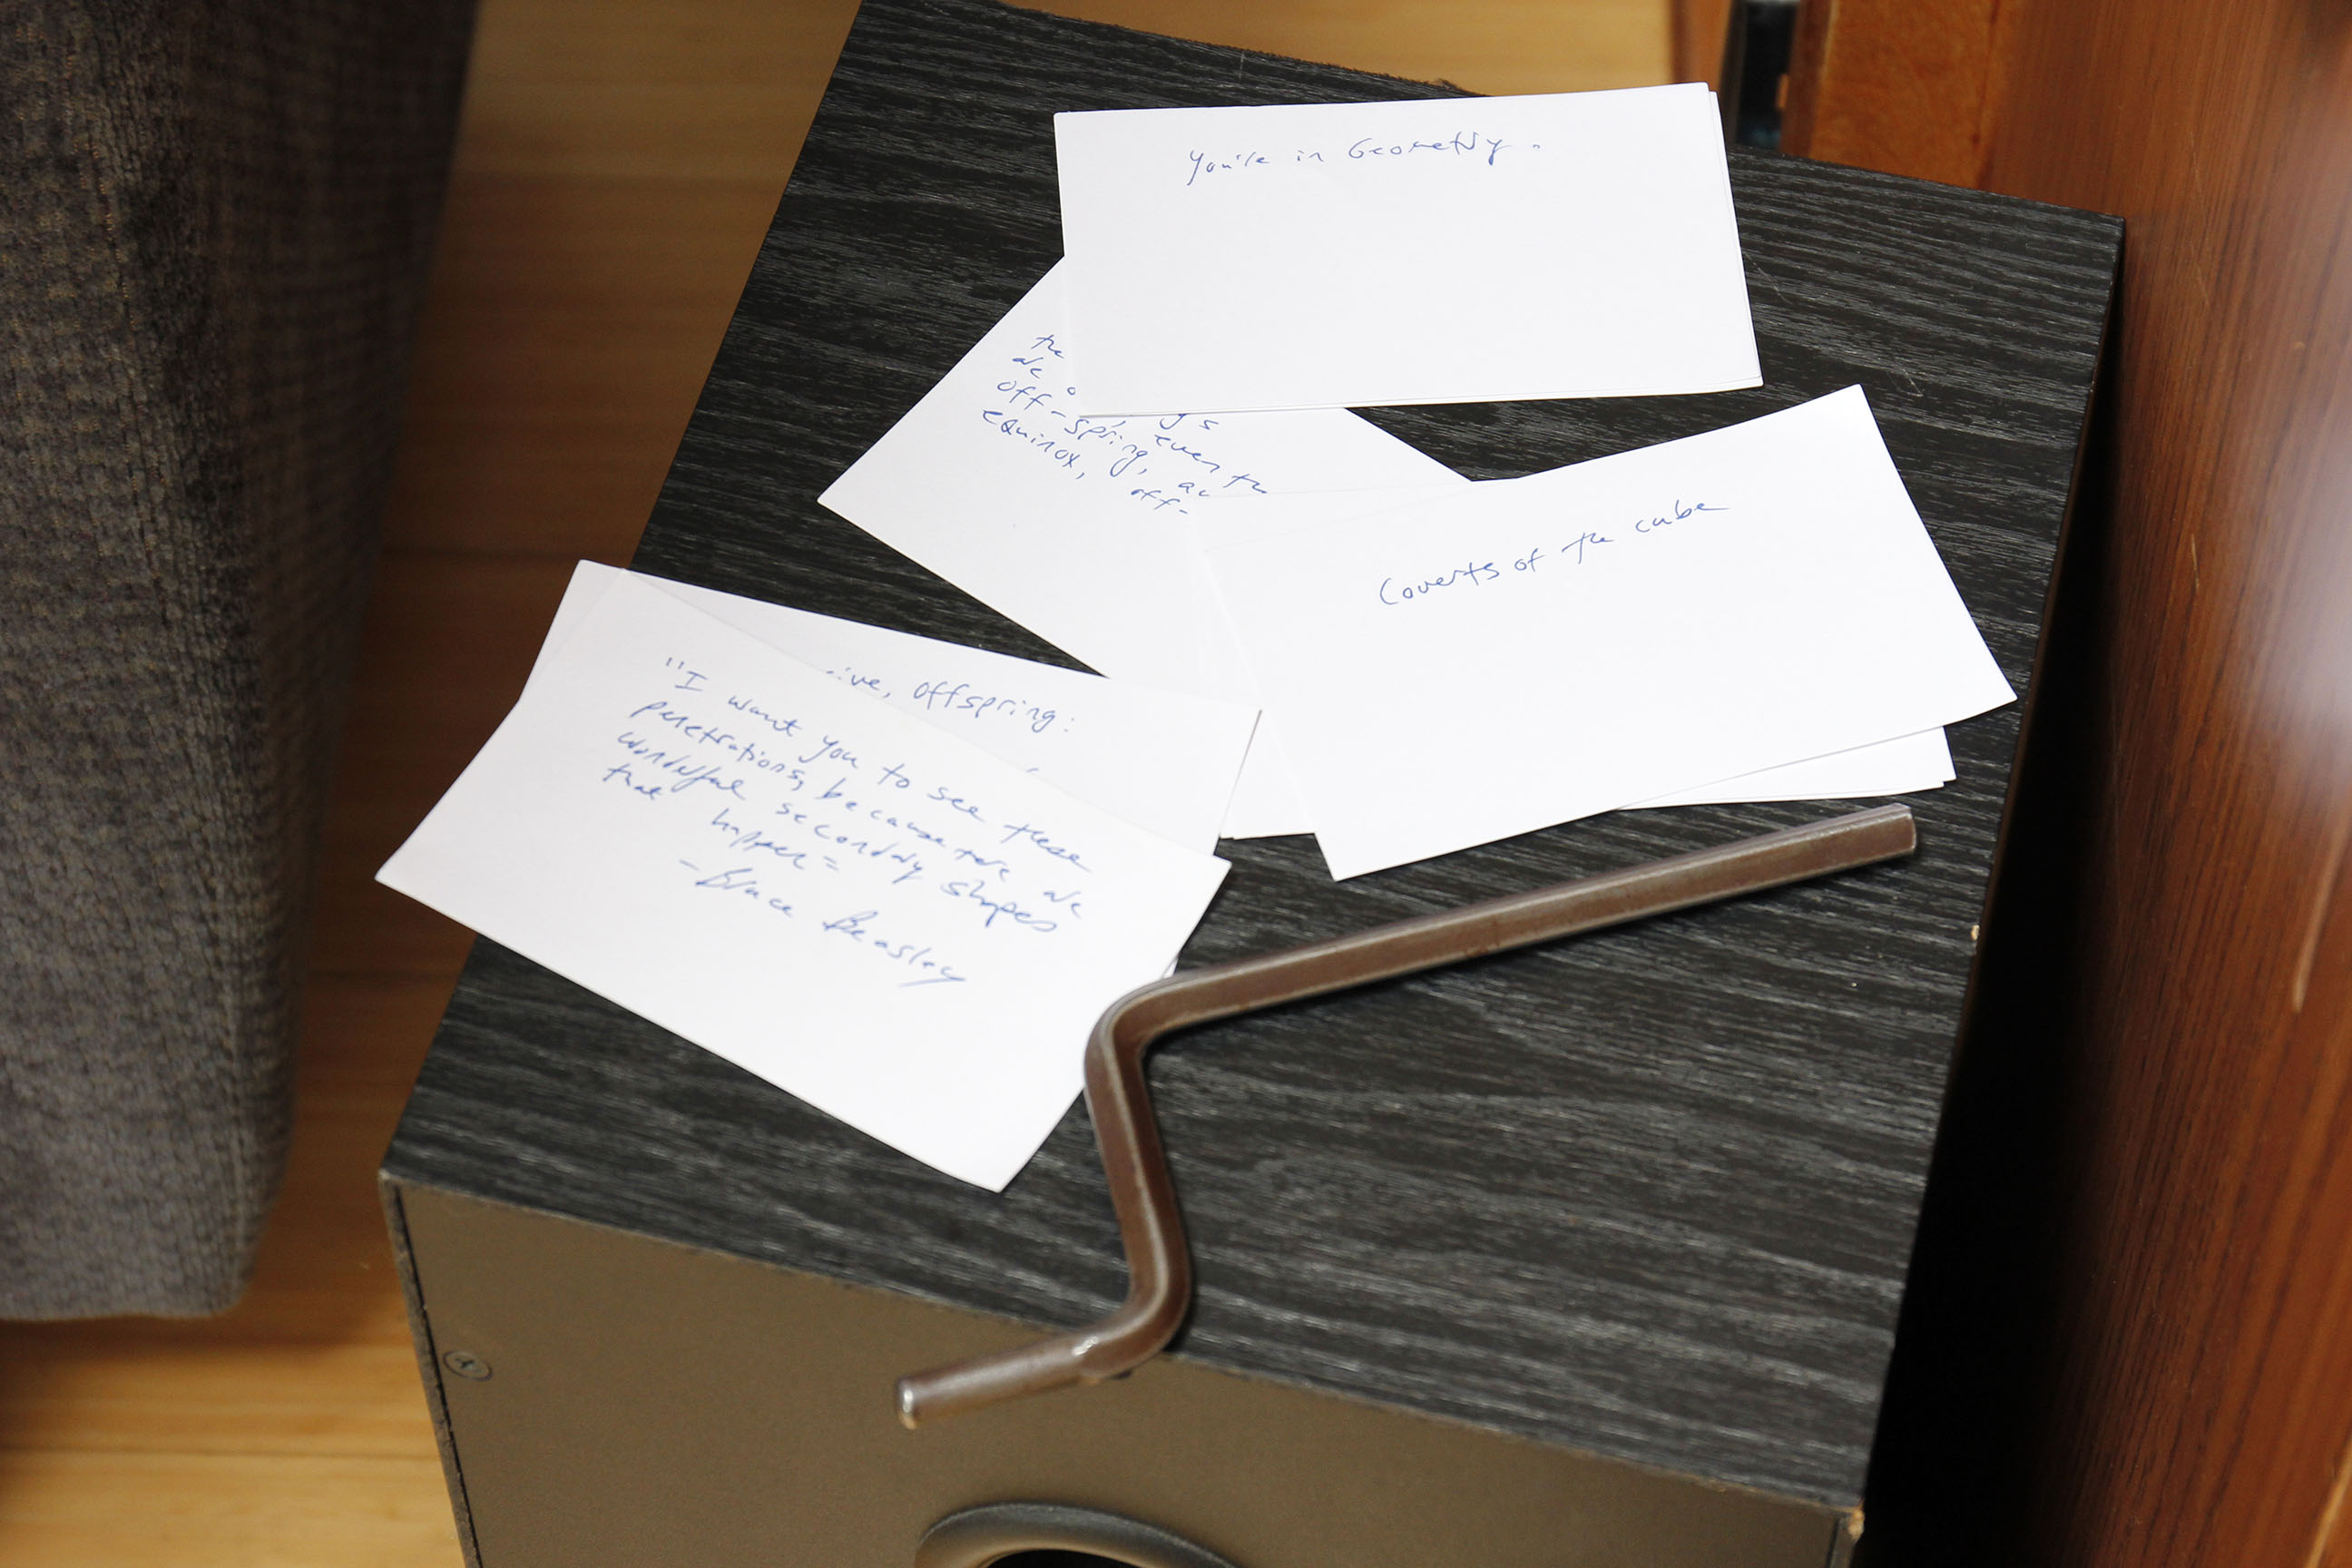 You're in Geometry.
the
are
off-spring, even the
equinox, off-
Coverts of the cube
offspring:
"I want you to see these
penetrations, because there are
wonderful secondary shapes
that happen=
-Bruce Beasley